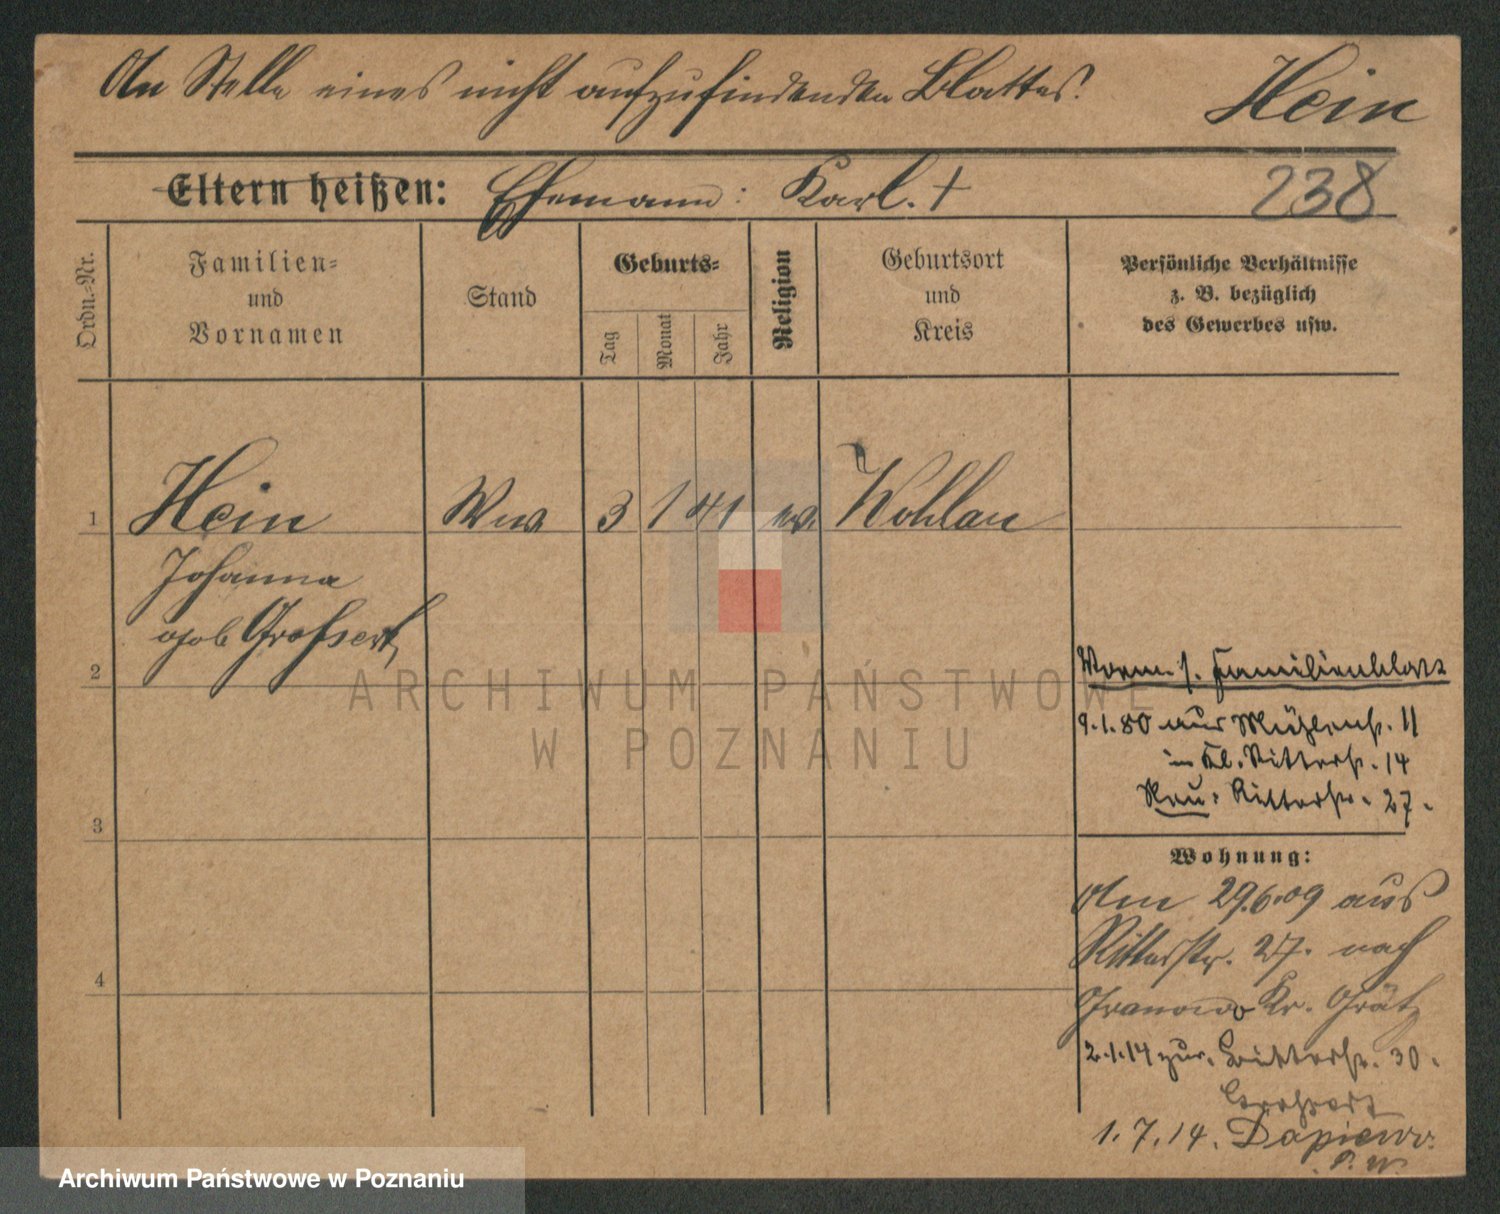 An Stelle eines nicht aufzufindenden Blattes.
Hein
Eltern heißen: Ehemann: Karl. †
238
Ordn.-Nr.
Familien-
und
Vornamen
Stand
Geburts-
Tag
Monat
Jahr
Religion
Geburtsort
und
Kreis
Persönliche Verhältnisse
z. B. bezüglich
des Gewerbes usw.
1 Hein Wwe 3 1 41 ev. Wohlau
Johanna
geb
2
ARCHIWUM PAŃSTWOWE
W POZNANIU
3
4
Vorm. s. Familienblatt
9.1.80 aus Mühlenstr. 11
in Kl. Ritterstr. 14
Neu: Ritterstr. 27.
Wohnung:
Am 29.6.09 aus
Ritterstr. 27. nach
Granowo Kr. Grätz
2.1.14 zur. Ritterstr. 30.
1.7.14. Dopiewo
P. W.
Archiwum Państwowe w Poznaniu